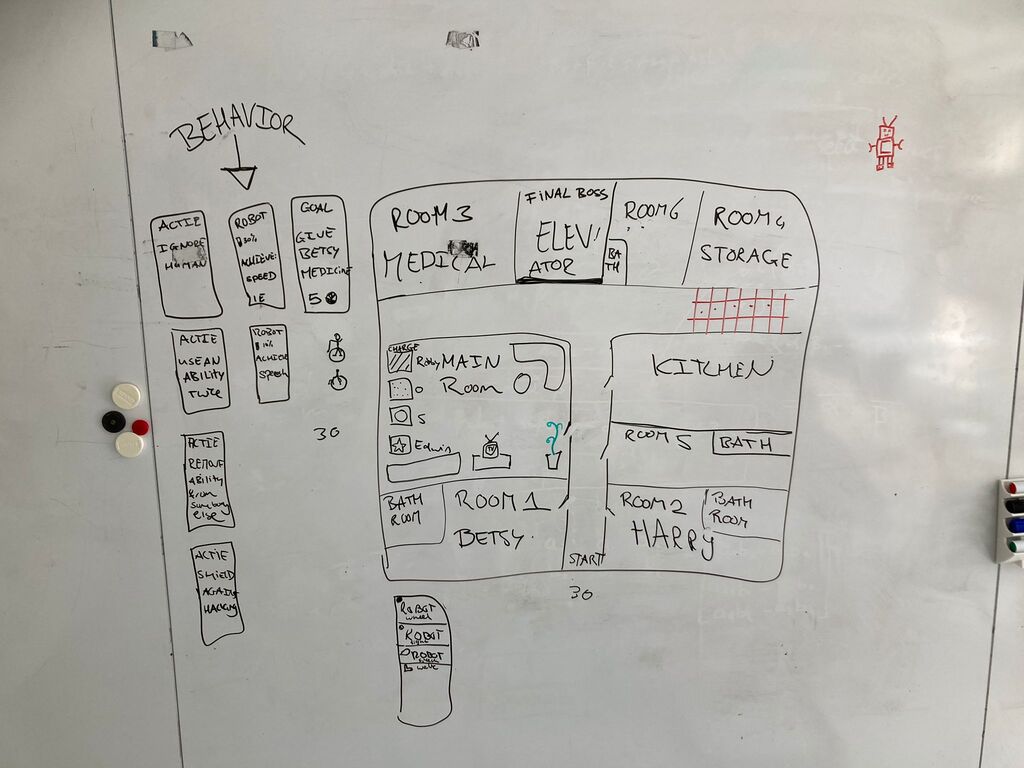 BEHAVIOR
ACTIE
IGNORE
HUMAN
ROBOT
30%
ACHIEVE:
SPEED
GOAL
GIVE
BETSY
MEDICINE
5
ACTIE
USE AN
ABILITY
TWICE
ROBOT
ACHIEVE
SPEECH
30
ACTIE
REMOVE
ABILITY
from
Somebody
ELSE
ACTIE
SHIELD
AGAINST
HACKING
ROOM 3
MEDICAL
FINAL BOSS
ELEV
ATOR
BA
TH
ROOM 6
ROOM 4
STORAGE
CHARGE
MAIN
ROOM
O
S
Edwin
TV
KITCHEN
ROOM 5
BATH
BATH
ROOM
ROOM 1
BETSY
START
ROOM 2
HARRY
BATH
ROOM
30
ROBOT
wheel
ROBOT
ROBOT
walk